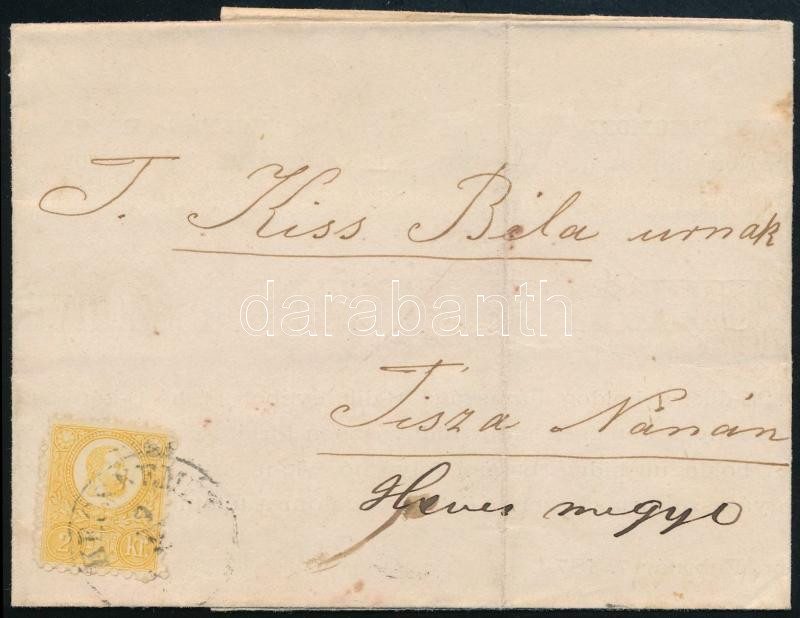 T. Kiss Béla urnak
darabanth
Tisza Nánán
Heves megye
2 Kr.